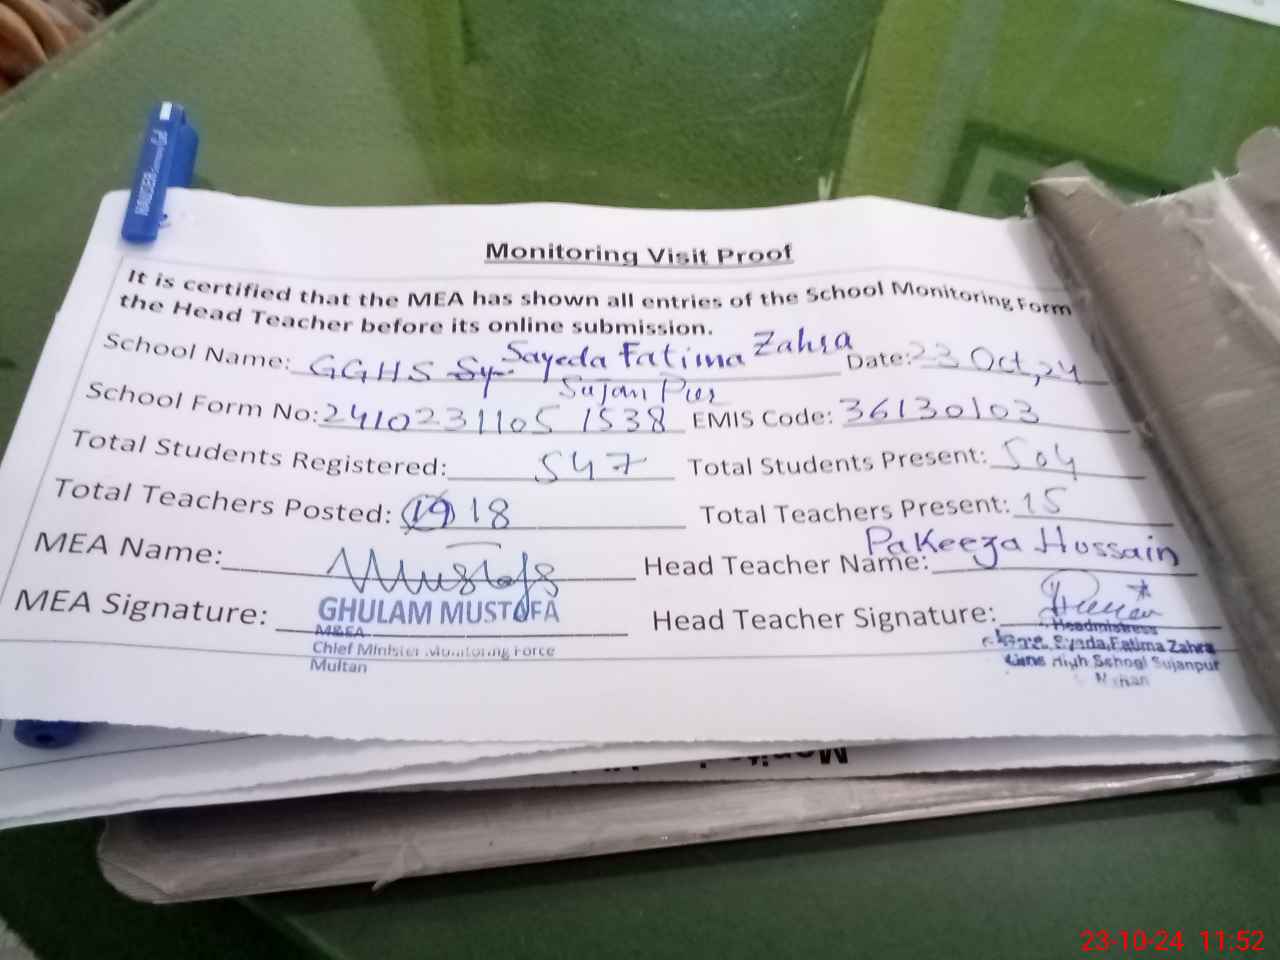 HAUSER
Monitoring Visit Proof
It is certified that the MEA has shown all entries of the School Monitoring Form
the Head Teacher before its online submission.
School Name: GGHS Sayeda Fatima Zahra Date: 23 Oct, 24
Sujan Pur
School Form No: 2410231105 1538 EMIS Code: 36130103
Total Students Registered: 547 Total Students Present: 504
Total Teachers Posted: 19 18 Total Teachers Present: 15
MEA Name: Mustafa Head Teacher Name: Pakeeza Hussain
MEA Signature: Head Teacher Signature:
GHULAM MUSTOFA
M&EA
Chief Minister Monitoring Force
Multan
Headmistress
Syada Fatima Zahra
High School Sujanpur
23-10-24 11:52